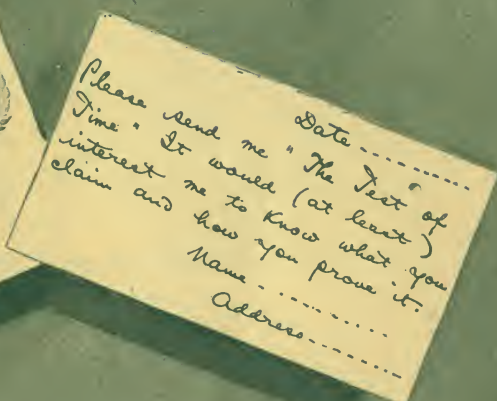 Date ............
Please send me "The Test of
Time" It would (at least)
interest me to know what you
claim and how you prove it.
Name ............
Address............